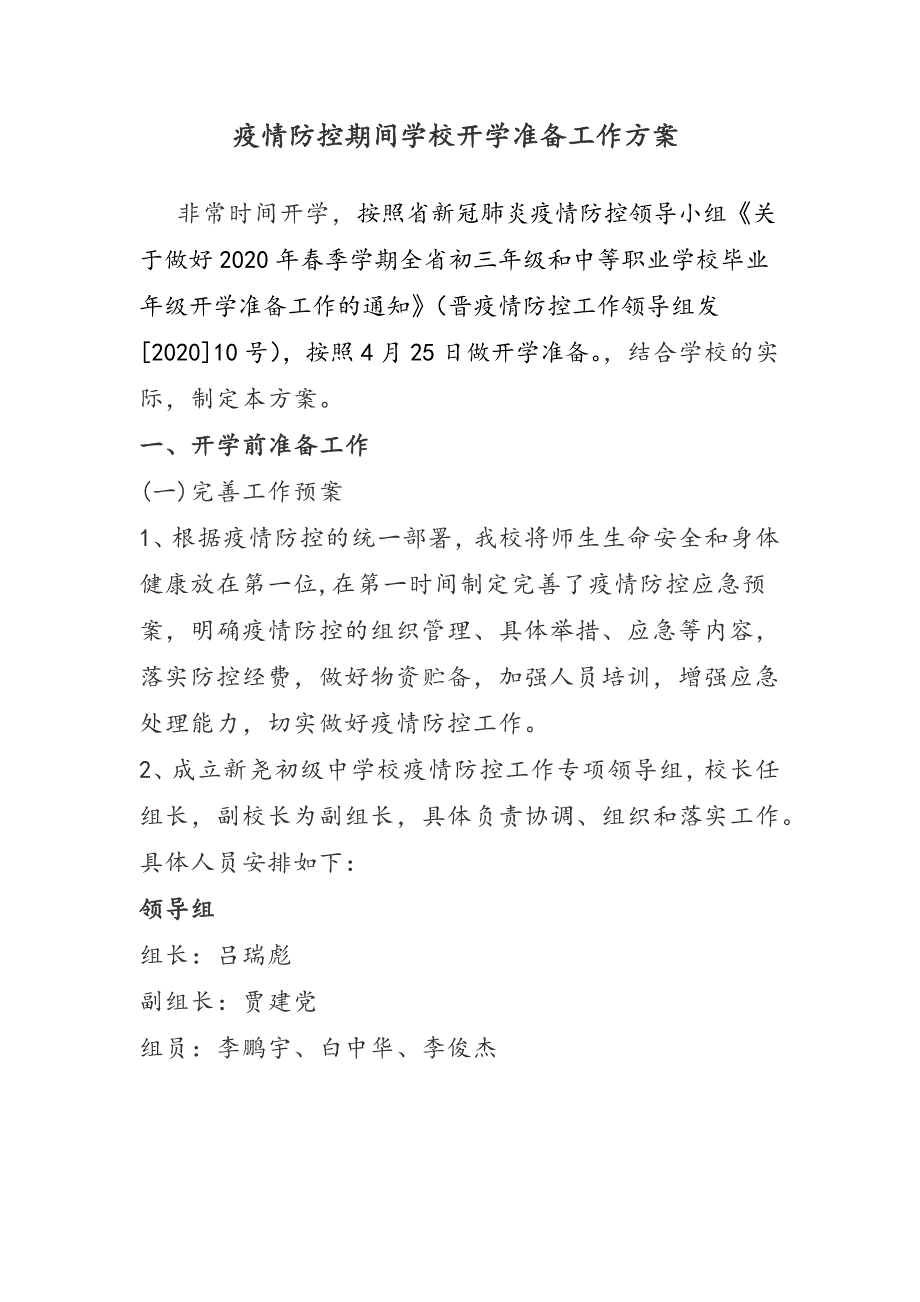 疫情防控期间学校开学准备工作方案
非常时间开学，按照省新冠肺炎疫情防控领导小组《关
于做好2020年春季学期全省初三年级和中等职业学校毕业
年级开学准备工作的通知》（晋疫情防控工作领导组发
[2020]10号），按照4月25日做开学准备。，结合学校的实
际，制定本方案。
一、开学前准备工作
(一)完善工作预案
1、根据疫情防控的统一部署，我校将师生生命安全和身体
健康放在第一位,在第一时间制定完善了疫情防控应急预
案，明确疫情防控的组织管理、具体举措、应急等内容，
落实防控经费，做好物资贮备，加强人员培训，增强应急
处理能力，切实做好疫情防控工作。
2、成立新尧初级中学校疫情防控工作专项领导组，校长任
组长，副校长为副组长，具体负责协调、组织和落实工作。
具体人员安排如下：
领导组
组长：吕瑞彪
副组长：贾建党
组员：李鹏宇、白中华、李俊杰